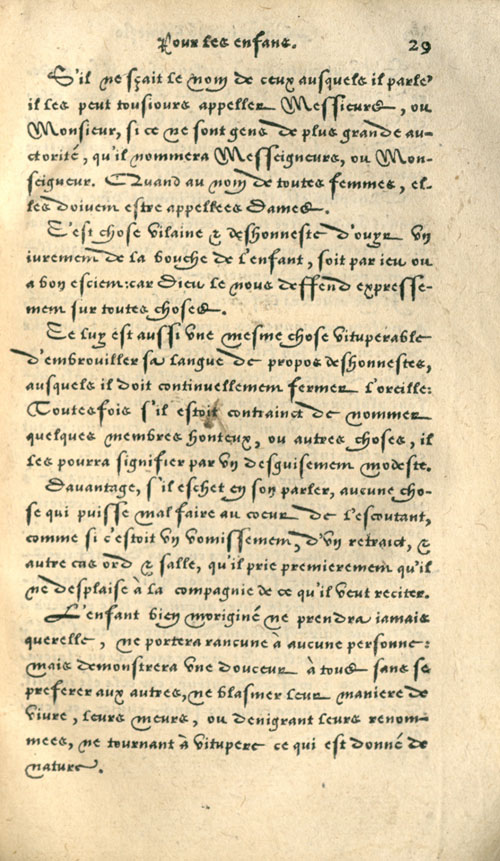 Pour les enfans. 29
S'il ne sçait le nom de ceux ausquels il parle,
il les peut tousiours appeller Messieurs, ou
Monsieur, si ce ne sont gens de plus grande au-
ctorité, qu'il nommera Messeigneurs, ou Mon-
seigneur. Quand au nom de toutes femmes, el-
les doivent estre appellees Dames.
C'est chose vilaine & deshonneste d'ouyr vn
iurement de la bouche de l'enfant, soit par ieu ou
a bon escient: car Dieu le nous deffend expresse-
ment sur toutes choses.
Ce luy est aussi vne mesme chose vituperable
d'embrouiller sa langue de propos deshonnestes,
ausquels il doit continuellement fermer l'oreille:
Toutesfois s'il estoit contrainct de nommer
quelques membres honteux, ou autres choses, il
les pourra signifier par vn desguisement modeste.
Davantage, s'il eschet en son parler, aucune cho-
se qui puisse mal faire au coeur de l'escoutant,
comme si c'estoit vn vomissement, d'vn retraict, &
autre cas ord & salle, qu'il prie premierement qu'il
ne desplaise à la compagnie de ce qu'il veut reciter.
L'enfant bien moriginé ne prendra iamais
querelle, ne portera rancune à aucune personne:
mais demonstrera vne douceur à tous sans se
preferer aux autres, ne blasmer leur maniere de
vivre, leurs meurs, ou denigrant leurs renom-
mees, ne tournant à vitupere ce qui est donné de
nature.